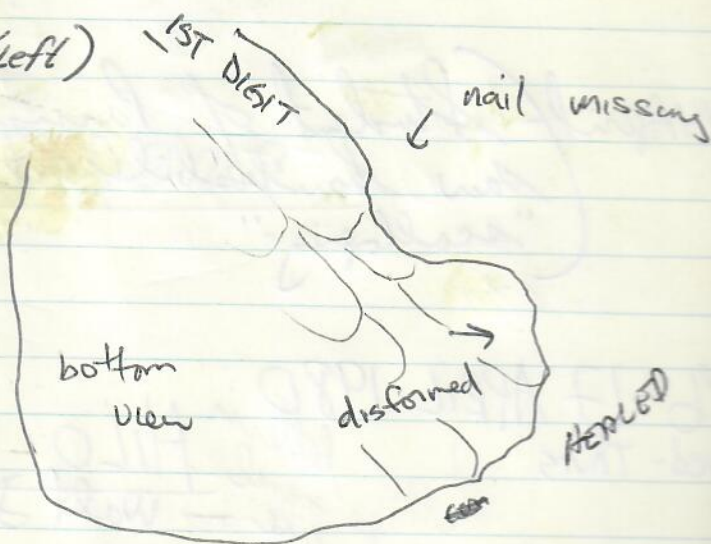 Left)
1ST DIGIT
nail missing
bottom
view
disformed
HEALED